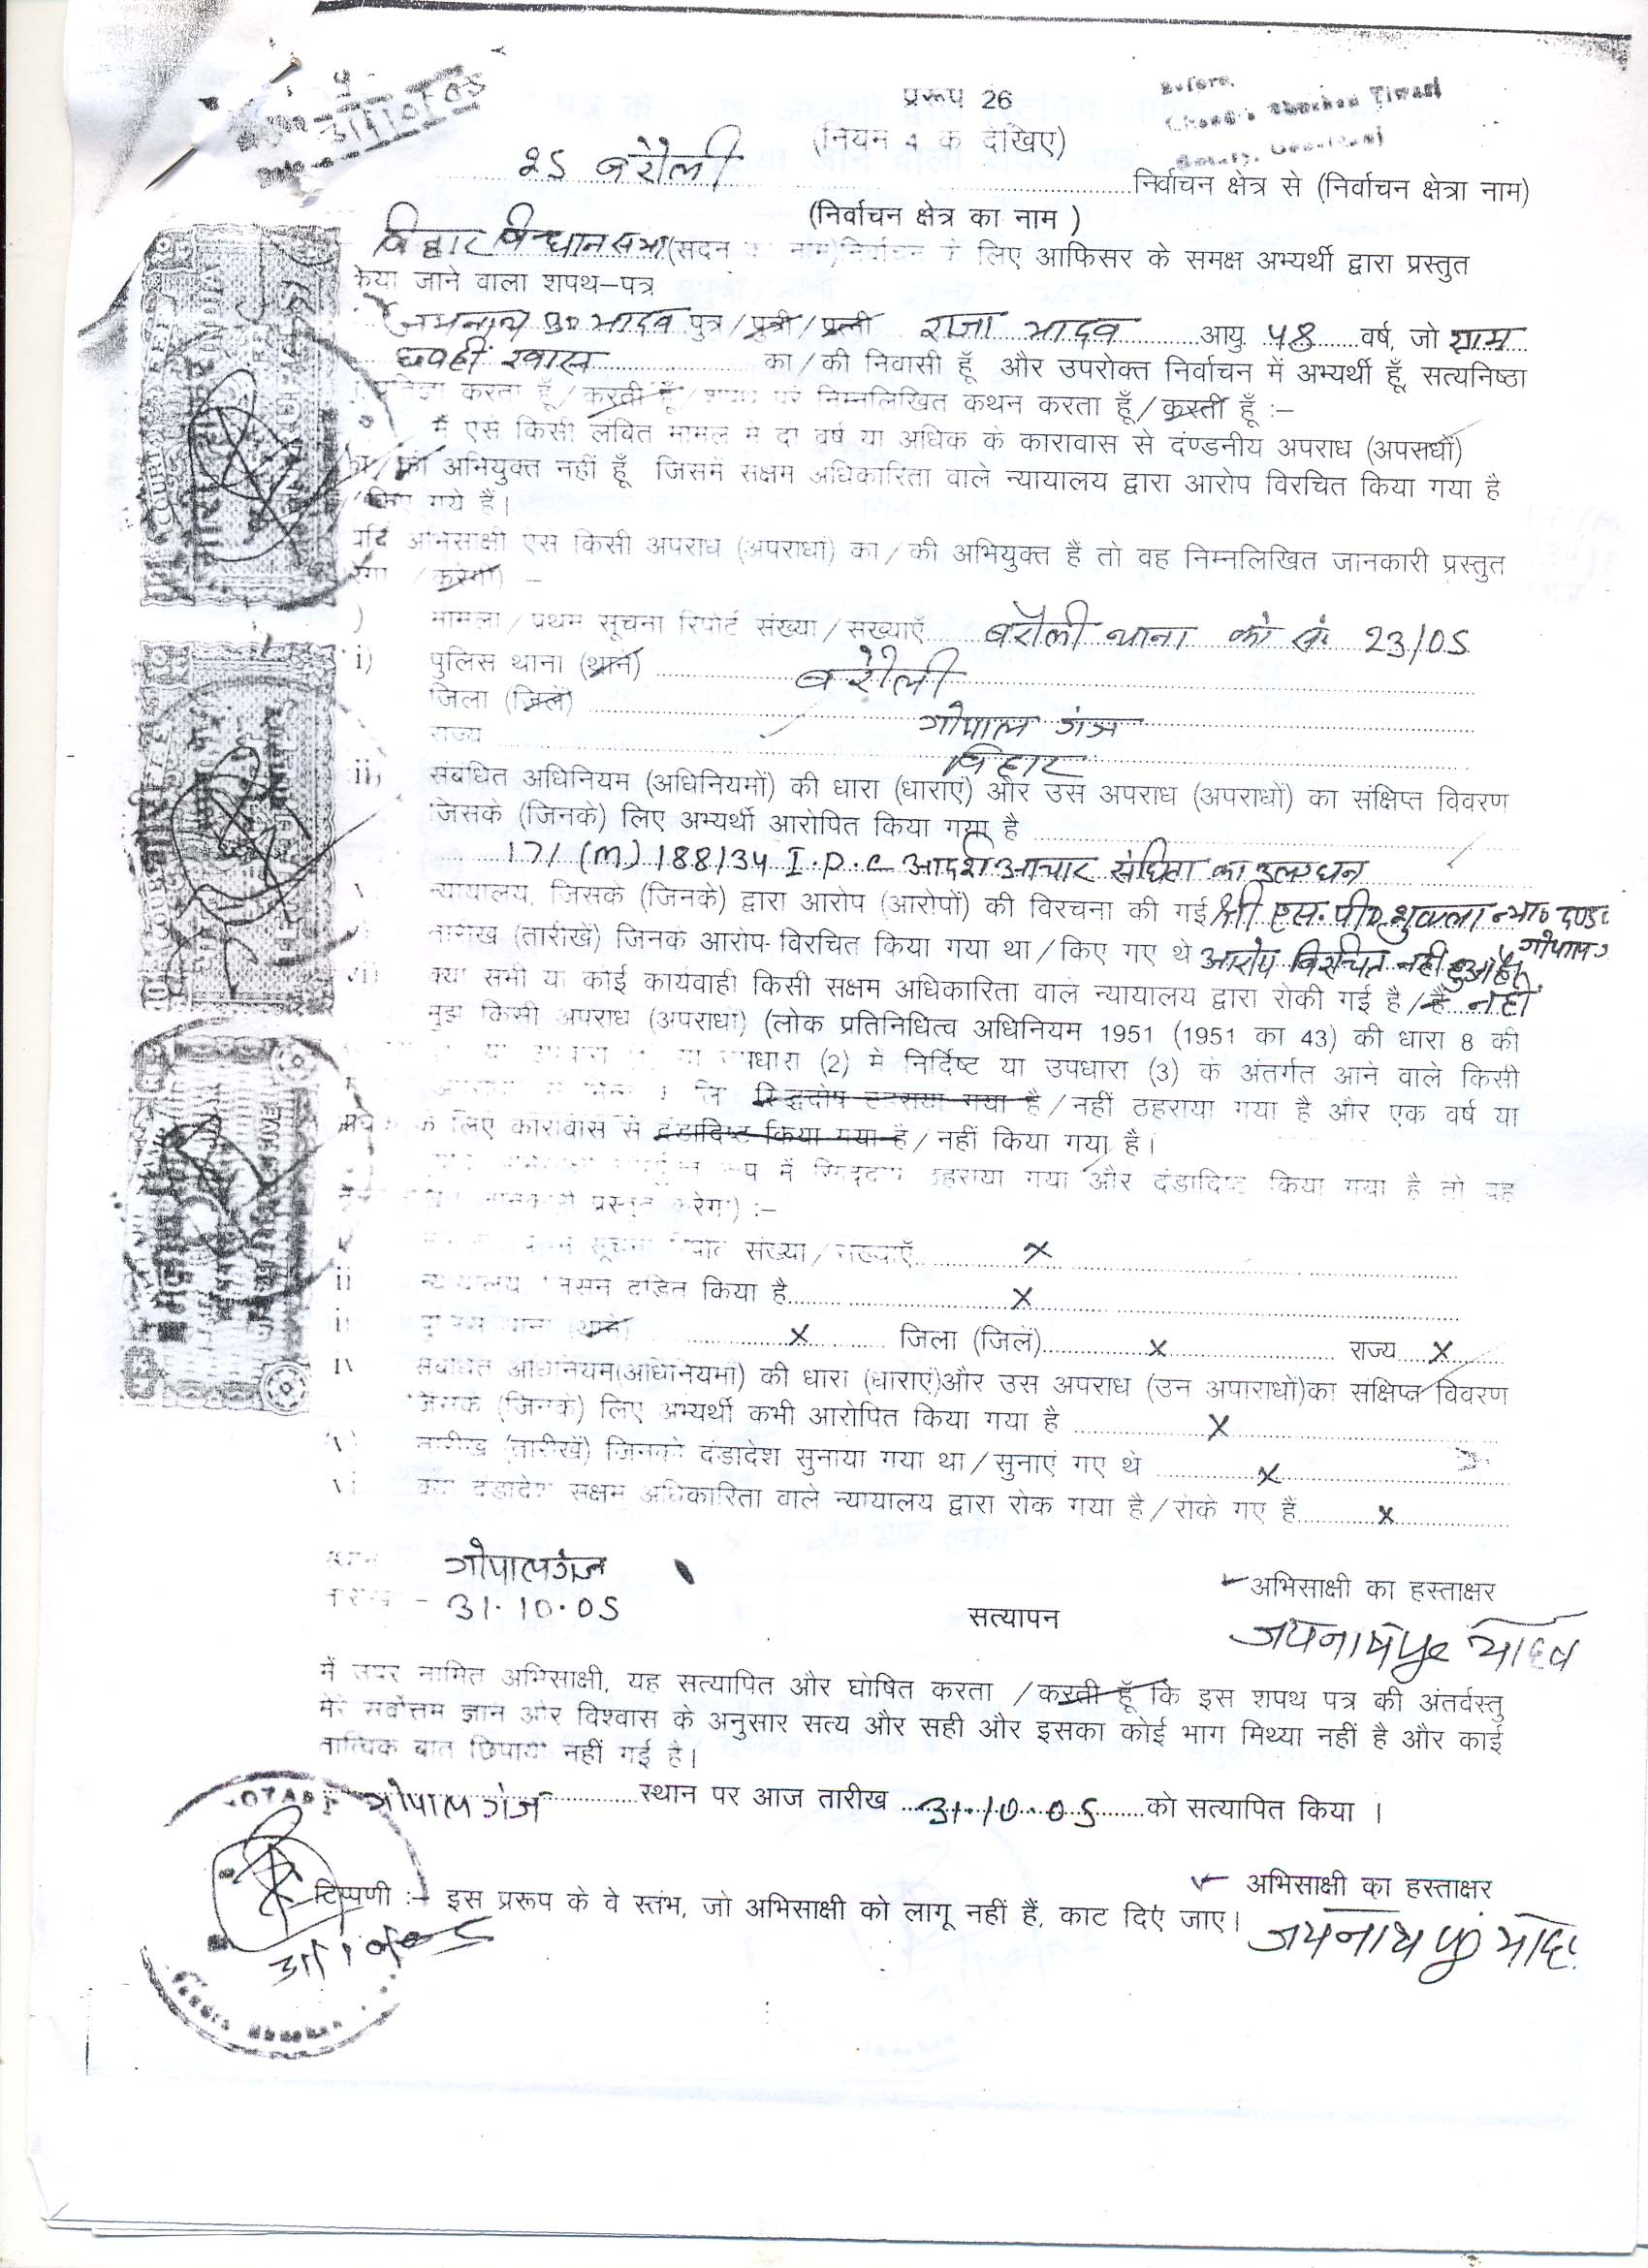 प्ररूप 26
Before,
(नियम 4 क देखिए)
Notary, Gopalganj
25 बरौली निर्वाचन क्षेत्र से (निर्वाचन क्षेत्रा नाम)
(निर्वाचन क्षेत्र का नाम )
बिहार विधान सभा (सदन का नाम) निर्वाचन के लिए आफिसर के समक्ष अभ्यर्थी द्वारा प्रस्तुत
केया जाने वाला शपथ-पत्र
जयनाथ प्र० यादव पुत्र/पुत्री/पत्नी राजा यादव आयु 58 वर्ष, जो ग्राम
का/की निवासी हूँ और उपरोक्त निर्वाचन में अभ्यर्थी हूँ, सत्यनिष्ठा
करता हूँ/करती हूँ/शपथ पर निम्नलिखित कथन करता हूँ/करती हूँ :-
मैं ऐसे किसी लंबित मामले में दो वर्ष या अधिक के कारावास से दंण्डनीय अपराध (अपराधों)
का/की अभियुक्त नहीं हूँ जिसमें सक्षम अधिकारिता वाले न्यायालय द्वारा आरोप विरचित किया गया है
/किए गये हैं।
यदि अभिसाक्षी ऐसे किसी अपराध (अपराधों) का/की अभियुक्त हैं तो वह निम्नलिखित जानकारी प्रस्तुत
रेगा /करेगी) -
) मामला/प्रथम सूचना रिपोर्ट संख्या/सख्याएँ बरौली थाना कां सं. 23/05
i) पुलिस थाना (थाने) बरौली
जिला (जिले) गोपाल गंज
राज्य बिहार
ii) संबंधित अधिनियम (अधिनियमों) की धारा (धाराएं) और उस अपराध (अपराधों) का संक्षिप्त विवरण
जिसके (जिनके) लिए अभ्यर्थी आरोपित किया गया है
171 (M) 188/34 I.P.C आदर्श आचार संहिता का उलंघन
न्यायालय, जिसके (जिनके) द्वारा आरोप (आरोपों) की विरचना की गई श्री एस. पी० शुक्ला न्या० दण्डा
गोपाल
तारीख (तारीखें) जिनके आरोप विरचित किया गया था/किए गए थे आरोप विरचित नहीं हुआ है।
क्या सभी या कोई कार्यवाही किसी सक्षम अधिकारिता वाले न्यायालय द्वारा रोकी गई है/है नहीं
मुझे किसी अपराध (अपराधों) (लोक प्रतिनिधित्व अधिनियम 1951 (1951 का 43) की धारा 8 की
उपधारा (2) में निर्दिष्ट या उपधारा (3) के अंतर्गत आने वाले किसी
सिद्धदोष ठहराया गया है/नहीं ठहराया गया है और एक वर्ष या
के लिए कारावास से दंडादिष्ट किया गया है/नहीं किया गया है।
में सिद्धदोष ठहराया गया और दंडादिष्ट किया गया है तो वह
जानकारी प्रस्तुत करेगा) :-
सूचना रिपोर्ट संख्या/सख्याएँ x
ii न्यायालय जिसने दंडित किया है x
पुलिस थाना (थाने) x जिला (जिलें) x राज्य x
iv संबंधित अधिनियम(अधिनियमों) की धारा (धाराएं)और उस अपराध (उन अपाराधों)का संक्षिप्त विवरण
जिसके (जिनके) लिए अभ्यर्थी कभी आरोपित किया गया है x
तारीख (तारीखें) जिनको दंडादेश सुनाया गया था/सुनाएं गए थे x
क्या दंडादेश सक्षम अधिकारिता वाले न्यायालय द्वारा रोक गया है/रोके गए हैं x
गोपालगंज
अभिसाक्षी का हस्ताक्षर
तारीख - 31.10.05
सत्यापन
जयनाथ प्र० यादव
में उपर नामित अभिसाक्षी, यह सत्यापित और घोषित करता /करती हूँ कि इस शपथ पत्र की अंतर्वस्तु
मेरे सर्वोत्तम ज्ञान और विश्वास के अनुसार सत्य और सही और इसका कोई भाग मिथ्या नहीं है और काई
तात्विक बात छिपायी नहीं गई है।
NOTARY
गोपाल गंज स्थान पर आज तारीख 31.10.05 को सत्यापित किया ।
अभिसाक्षी का हस्ताक्षर
टिप्पणी :- इस प्ररूप के वे स्तंभ, जो अभिसाक्षी को लागू नहीं हैं, काट दिए जाए।
जयनाथ प्र० यादव